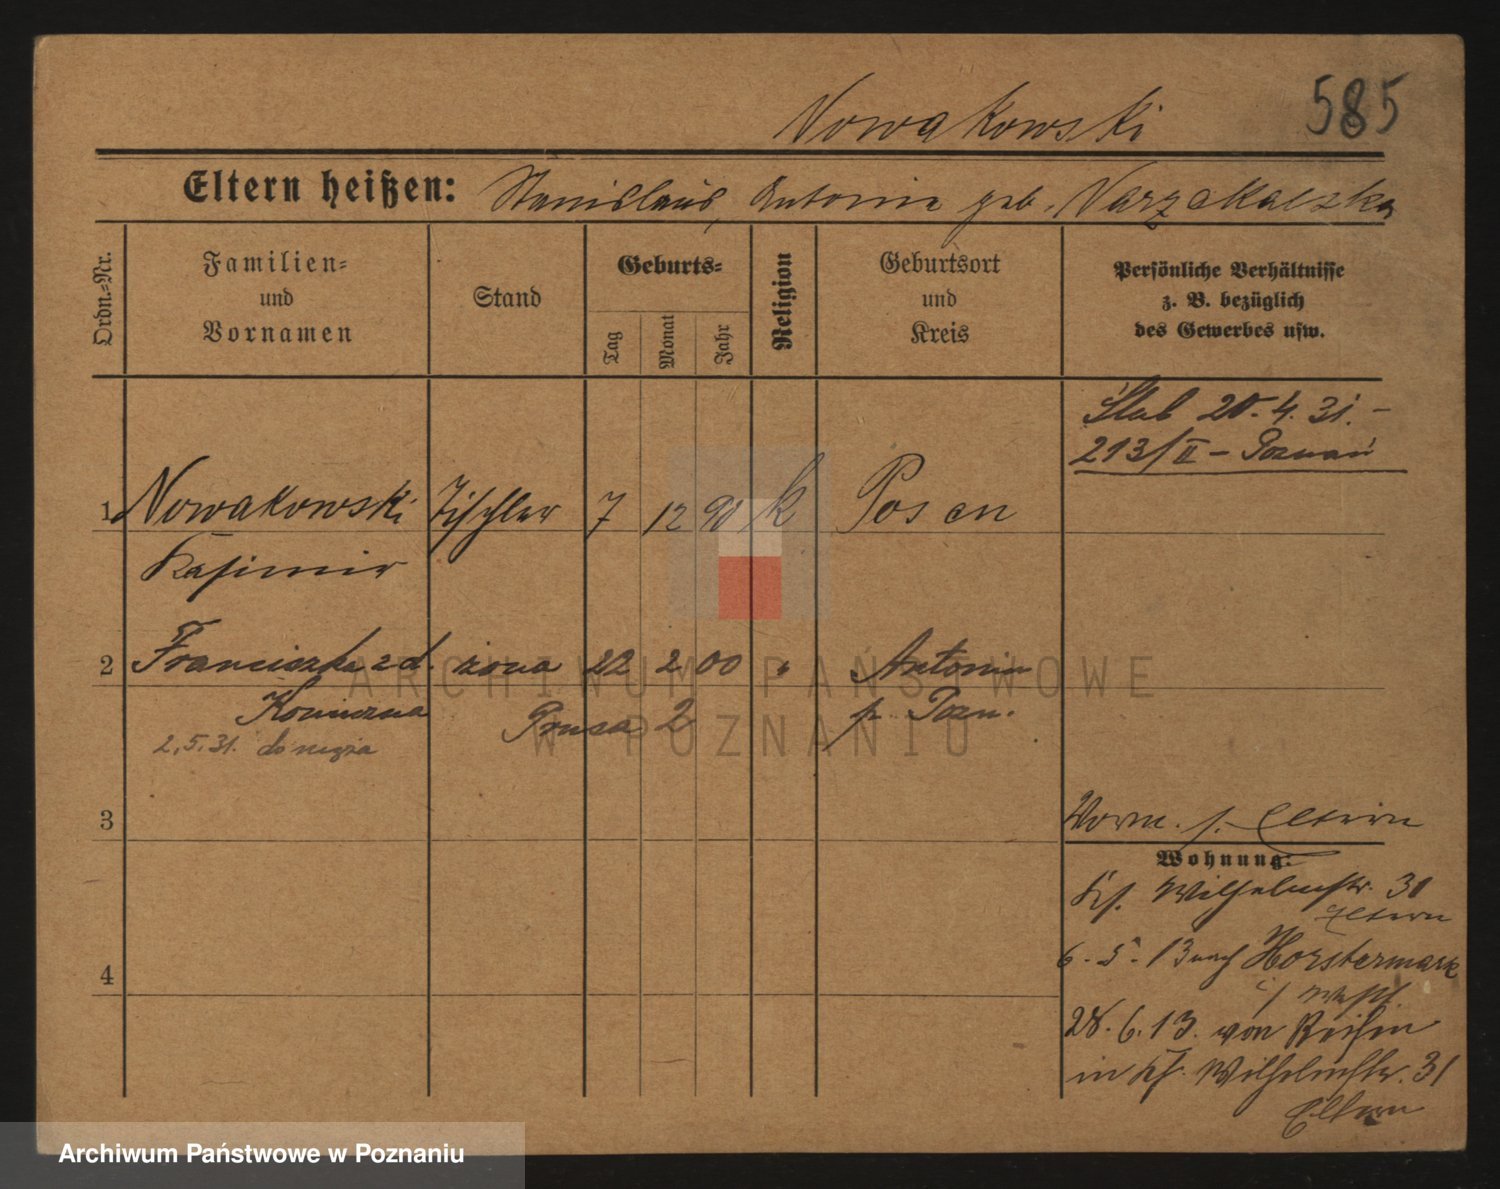 Nowakowski 585
Eltern heißen: Stanislaus, Antonie geb.
Ordn.-Nr. Familien- und Vornamen Stand Geburts- Tag Monat Jahr Religion Geburtsort und Kreis Persönliche Verhältnisse z. B. bezüglich des Gewerbes usw.
Ślub 20.4.31.-
213/II - Poznań
1 Nowakowski Tischler 7 12 90 k Posen
Kasimir
2 Franciszka zd. żona 22 2 00 " Antonin
Konieczna 2 p. Pozn.
2.5.31. do męża
3
4
Vorm. s. Eltern
Wohnung:
Ks. Wilhelmstr. 31
Eltern
6.5.13 nach Horstermark
i/ Westf.
28.6.13. von Reisen
in Ks. Wilhelmstr. 31
Eltern
ARCHIWUM PAŃSTWOWE
W POZNANIU
Archiwum Państwowe w Poznaniu